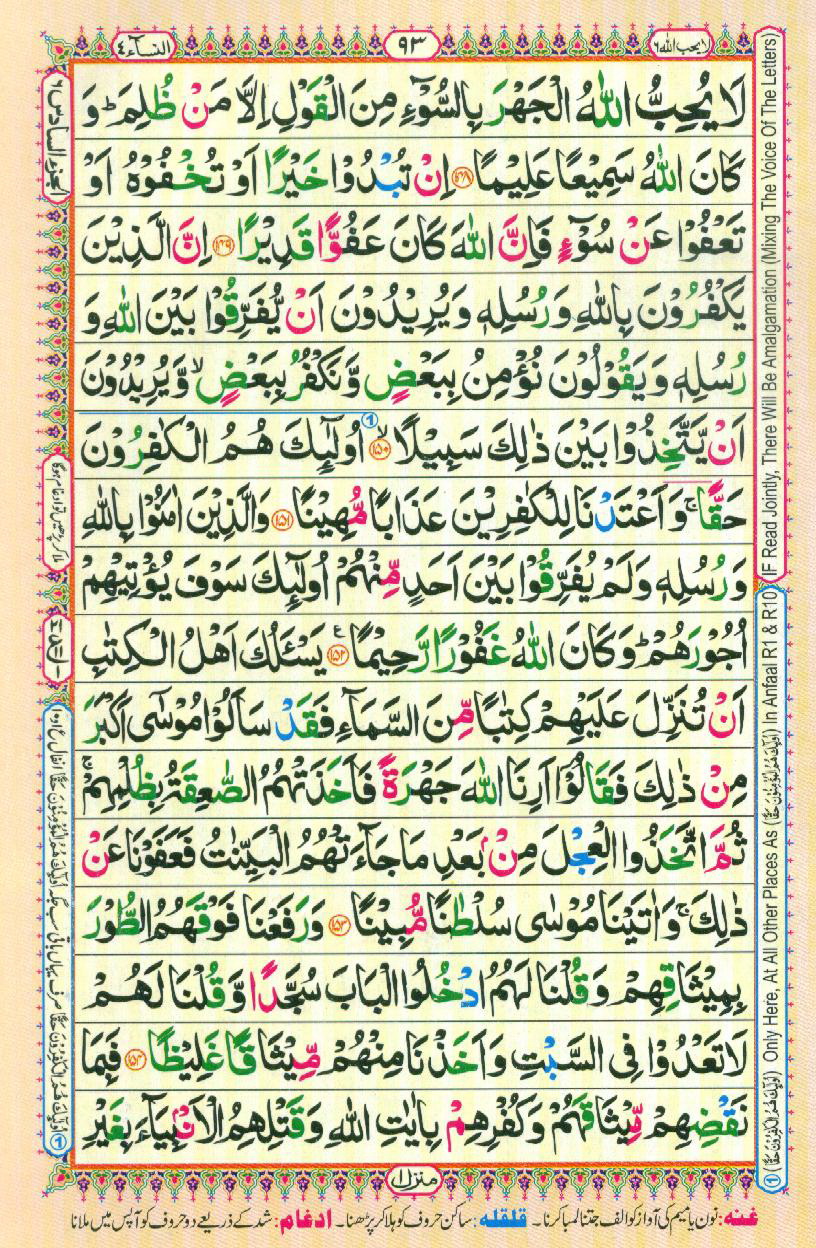 النسآء ٤
٩٣
لا یحب الله ٦
لَا يُحِبُّ اللّٰهُ الْجَهْرَ بِالسُّوْٓءِ مِنَ الْقَوْلِ اِلَّا مَنْ ظُلِمَ ؕ وَ
كَانَ اللّٰهُ سَمِيْعًا عَلِيْمًا ﴿١٤٨﴾ اِنْ تُبْدُوْا خَيْرًا اَوْ تُخْفُوْهُ اَوْ
تَعْفُوْا عَنْ سُوْٓءٍ فَاِنَّ اللّٰهَ كَانَ عَفُوًّا قَدِيْرًا ﴿١٤٩﴾ اِنَّ الَّذِيْنَ
يَكْفُرُوْنَ بِاللّٰهِ وَرُسُلِهٖ وَيُرِيْدُوْنَ اَنْ يُّفَرِّقُوْا بَيْنَ اللّٰهِ وَ
رُسُلِهٖ وَيَقُوْلُوْنَ نُؤْمِنُ بِبَعْضٍ وَّنَكْفُرُ بِبَعْضٍ ۙ وَّيُرِيْدُوْنَ
اَنْ يَّتَّخِذُوْا بَيْنَ ذٰلِكَ سَبِيْلًا ۙ ﴿١٥٠﴾ ① اُولٰٓئِكَ هُمُ الْكٰفِرُوْنَ
حَقًّا ۚ وَاَعْتَدْنَا لِلْكٰفِرِيْنَ عَذَابًا مُّهِيْنًا ﴿١٥١﴾ وَالَّذِيْنَ اٰمَنُوْا بِاللّٰهِ
وَرُسُلِهٖ وَلَمْ يُفَرِّقُوْا بَيْنَ اَحَدٍ مِّنْهُمْ اُولٰٓئِكَ سَوْفَ يُؤْتِيْهِمْ
اُجُوْرَهُمْ ؕ وَكَانَ اللّٰهُ غَفُوْرًا رَّحِيْمًا ﴿١٥٢﴾ ع يَسْـَٔلُكَ اَهْلُ الْكِتٰبِ
اَنْ تُنَزِّلَ عَلَيْهِمْ كِتٰبًا مِّنَ السَّمَآءِ فَقَدْ سَاَلُوْا مُوْسٰٓى اَكْبَرَ
مِنْ ذٰلِكَ فَقَالُوْٓا اَرِنَا اللّٰهَ جَهْرَةً فَاَخَذَتْهُمُ الصّٰعِقَةُ بِظُلْمِهِمْ ۚ
ثُمَّ اتَّخَذُوا الْعِجْلَ مِنْۢ بَعْدِ مَا جَآءَتْهُمُ الْبَيِّنٰتُ فَعَفَوْنَا عَنْ
ذٰلِكَ ۚ وَاٰتَيْنَا مُوْسٰى سُلْطٰنًا مُّبِيْنًا ﴿١٥٣﴾ وَرَفَعْنَا فَوْقَهُمُ الطُّوْرَ
بِمِيْثَاقِهِمْ وَقُلْنَا لَهُمُ ادْخُلُوا الْبَابَ سُجَّدًا وَّقُلْنَا لَهُمْ
لَا تَعْدُوْا فِى السَّبْتِ وَاَخَذْنَا مِنْهُمْ مِّيْثَاقًا غَلِيْظًا ﴿١٥٤﴾ فَبِمَا
نَقْضِهِمْ مِّيْثَاقَهُمْ وَكُفْرِهِمْ بِاٰيٰتِ اللّٰهِ وَقَتْلِهِمُ الْاَنْۢبِيَآءَ بِغَيْرِ
منزل ١
غنہ: نون یا میم کی آواز کو الف جتنا لمبا کرنا۔ قلقلہ: ساکن حروف کو ہلا کر پڑھنا۔ ادغام: شد کے ذریعے دو حروف کو آپس میں ملانا
(IF Read Jointly, There Will Be Amalgamation (Mixing The Voice Of The Letters)
① (اُولٰٓئِكَ هُمُ الْكٰفِرُوْنَ حَقًّا) Only Here, At All Other Places As (اُولٰٓئِكَ هُمُ الْمُؤْمِنُوْنَ حَقًّا) In Anfaal R1 & R10
الجزء السادس ٦